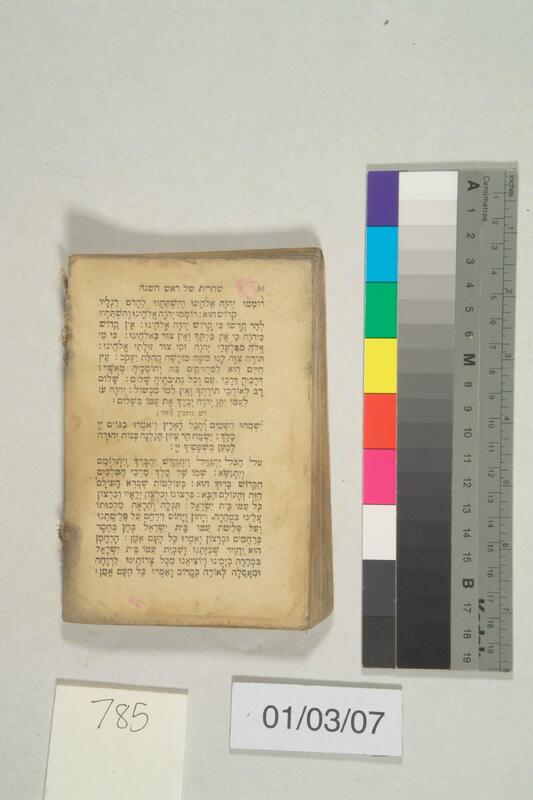 שחרית של ראש השנה
רוֹמְמוּ יְהוָֹה אֱלֹהֵינוּ וְהִשְׁתַּחֲווּ לַהֲדֹם רַגְלָיו
קָדוֹשׁ הוּא: רוֹמְמוּ יְהוָֹה אֱלֹהֵינוּ וְהִשְׁתַּחֲווּ
לְהַר קָדְשׁוֹ כִּי קָדוֹשׁ יְהוָֹה אֱלֹהֵינוּ: אֵין קָדוֹשׁ
כַּיהוָֹה כִּי אֵין בִּלְתֶּךָ וְאֵין צוּר כֵּאלֹהֵינוּ: כִּי מִי
אֱלוֹהַּ מִבַּלְעֲדֵי יְהוָֹה וּמִי צוּר זוּלָתִי אֱלֹהֵינוּ:
תּוֹרָה צִוָּה לָנוּ מֹשֶׁה מוֹרָשָׁה קְהִלַּת יַעֲקֹב: עֵץ
חַיִּים הִיא לַמַּחֲזִיקִים בָּהּ וְתוֹמְכֶיהָ מְאֻשָּׁר:
דְּרָכֶיהָ דַרְכֵי נֹעַם וְכָל נְתִיבֹתֶיהָ שָׁלוֹם: שָׁלוֹם
רָב לְאוֹהֲבֵי תוֹרָתֶךָ וְאֵין לָמוֹ מִכְשׁוֹל: יְהוָֹה עֹז
לְעַמּוֹ יִתֵּן יְהוָֹה יְבָרֵךְ אֶת עַמּוֹ בַשָּׁלוֹם:
ויש נוהגין לומר:
יִשְׂמְחוּ הַשָּׁמַיִם וְתָגֵל הָאָרֶץ וְיֹאמְרוּ בַגּוֹיִם יְיָ
מָלָךְ: יִשְׂמַח הַר צִיּוֹן תָּגֵלְנָה בְּנוֹת יְהוּדָה
לְמַעַן מִשְׁפָּטֶיךָ יְיָ:
עַל הַכֹּל יִתְגַּדַּל וְיִתְקַדַּשׁ יִתְבָּרַךְ וְיִתְרוֹמַם
וְיִתְנַשֵּׂא: שְׁמוֹ שֶׁל מֶלֶךְ מַלְכֵי הַמְּלָכִים
הַקָּדוֹשׁ בָּרוּךְ הוּא: בָּעוֹלָמוֹת שֶׁבָּרָא הָעוֹלָם
הַזֶּה וְהָעוֹלָם הַבָּא: כִּרְצוֹנוֹ וְכִרְצוֹן יְרֵאָיו וְכִרְצוֹן
כָּל עַמּוֹ בֵּית יִשְׂרָאֵל: תִּגָּלֶה וְתֵרָאֶה מַלְכוּתוֹ
עָלֵינוּ בִּמְהֵרָה. וְיָחוֹן וְיָחוֹס וִירַחֵם עַל פְּלֵיטָתֵנוּ
וְעַל פְּלֵיטַת עַמּוֹ בֵּית יִשְׂרָאֵל בְּחֵן בְּחֶסֶד
בְּרַחֲמִים וּבְרָצוֹן וְאָמְרוּ כָּל הָעָם אָמֵן: הָרַחֲמָן
הוּא יַחֲזִיר שְׁבִיתֵנוּ וּשְׁבִית עַמּוֹ בֵּית יִשְׂרָאֵל
בִּמְהֵרָה בְיָמֵינוּ וְיוֹצִיאֵנוּ מִכָּל צָרוֹתֵינוּ לִרְוָחָה
וּמֵאֲפֵלָה לְאוֹרָה בְּקָרוֹב וְאָמְרוּ כָּל הָעָם אָמֵן:
785
01/03/07
Inches
Centimetres
A
1
2
3
4
5
6
M
8
9
10
11
12
13
14
15
B
17
18
19